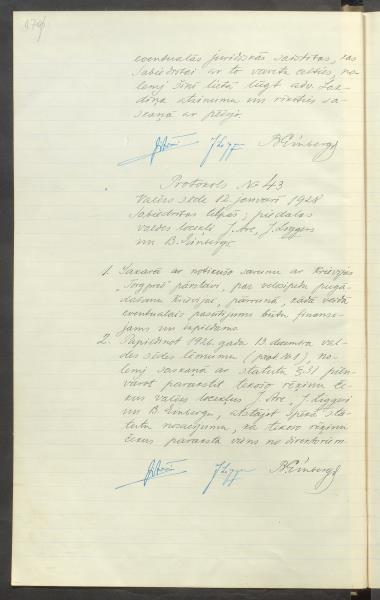 eventuālās juridiskās saistības, kas
Sabiedrībai ar to varētu celties, no-
lemj šinī lietā lūgt adv.
atzinumu un rīkoties sa-
skaņā ar pēdējo.
B Einbergs
Protokols № 43
Valdes sēde 12. janvārī 1928
Sabiedrības telpās; piedalās
valdes locekļi J. Āre, J. Liggers
un B. Einbergs.
1. Sakarā ar notikušo sarunu ar Krievijas
pārstāvi, par velosipēdu piegā-
dāšanu Krievijai, pārrunā, kādā veidā
eventuālais pasūtījums būtu finansē-
jams un izpildāms
2. Papildinot 1926. gada 13. decembra val-
des sēdes lēmumu (prot. №1), no-
lemj saskaņā ar statutu § 31 piln-
varot parakstīt tekošo rēķinu če-
kus valdes locekļus J. Āre, J. Liggeri
un B. Einbergu, atstājot spēkā sta-
tutu nosacījumu, ka tekošo rēķinu
čekus paraksta viens no direktoriem
B Einbergs